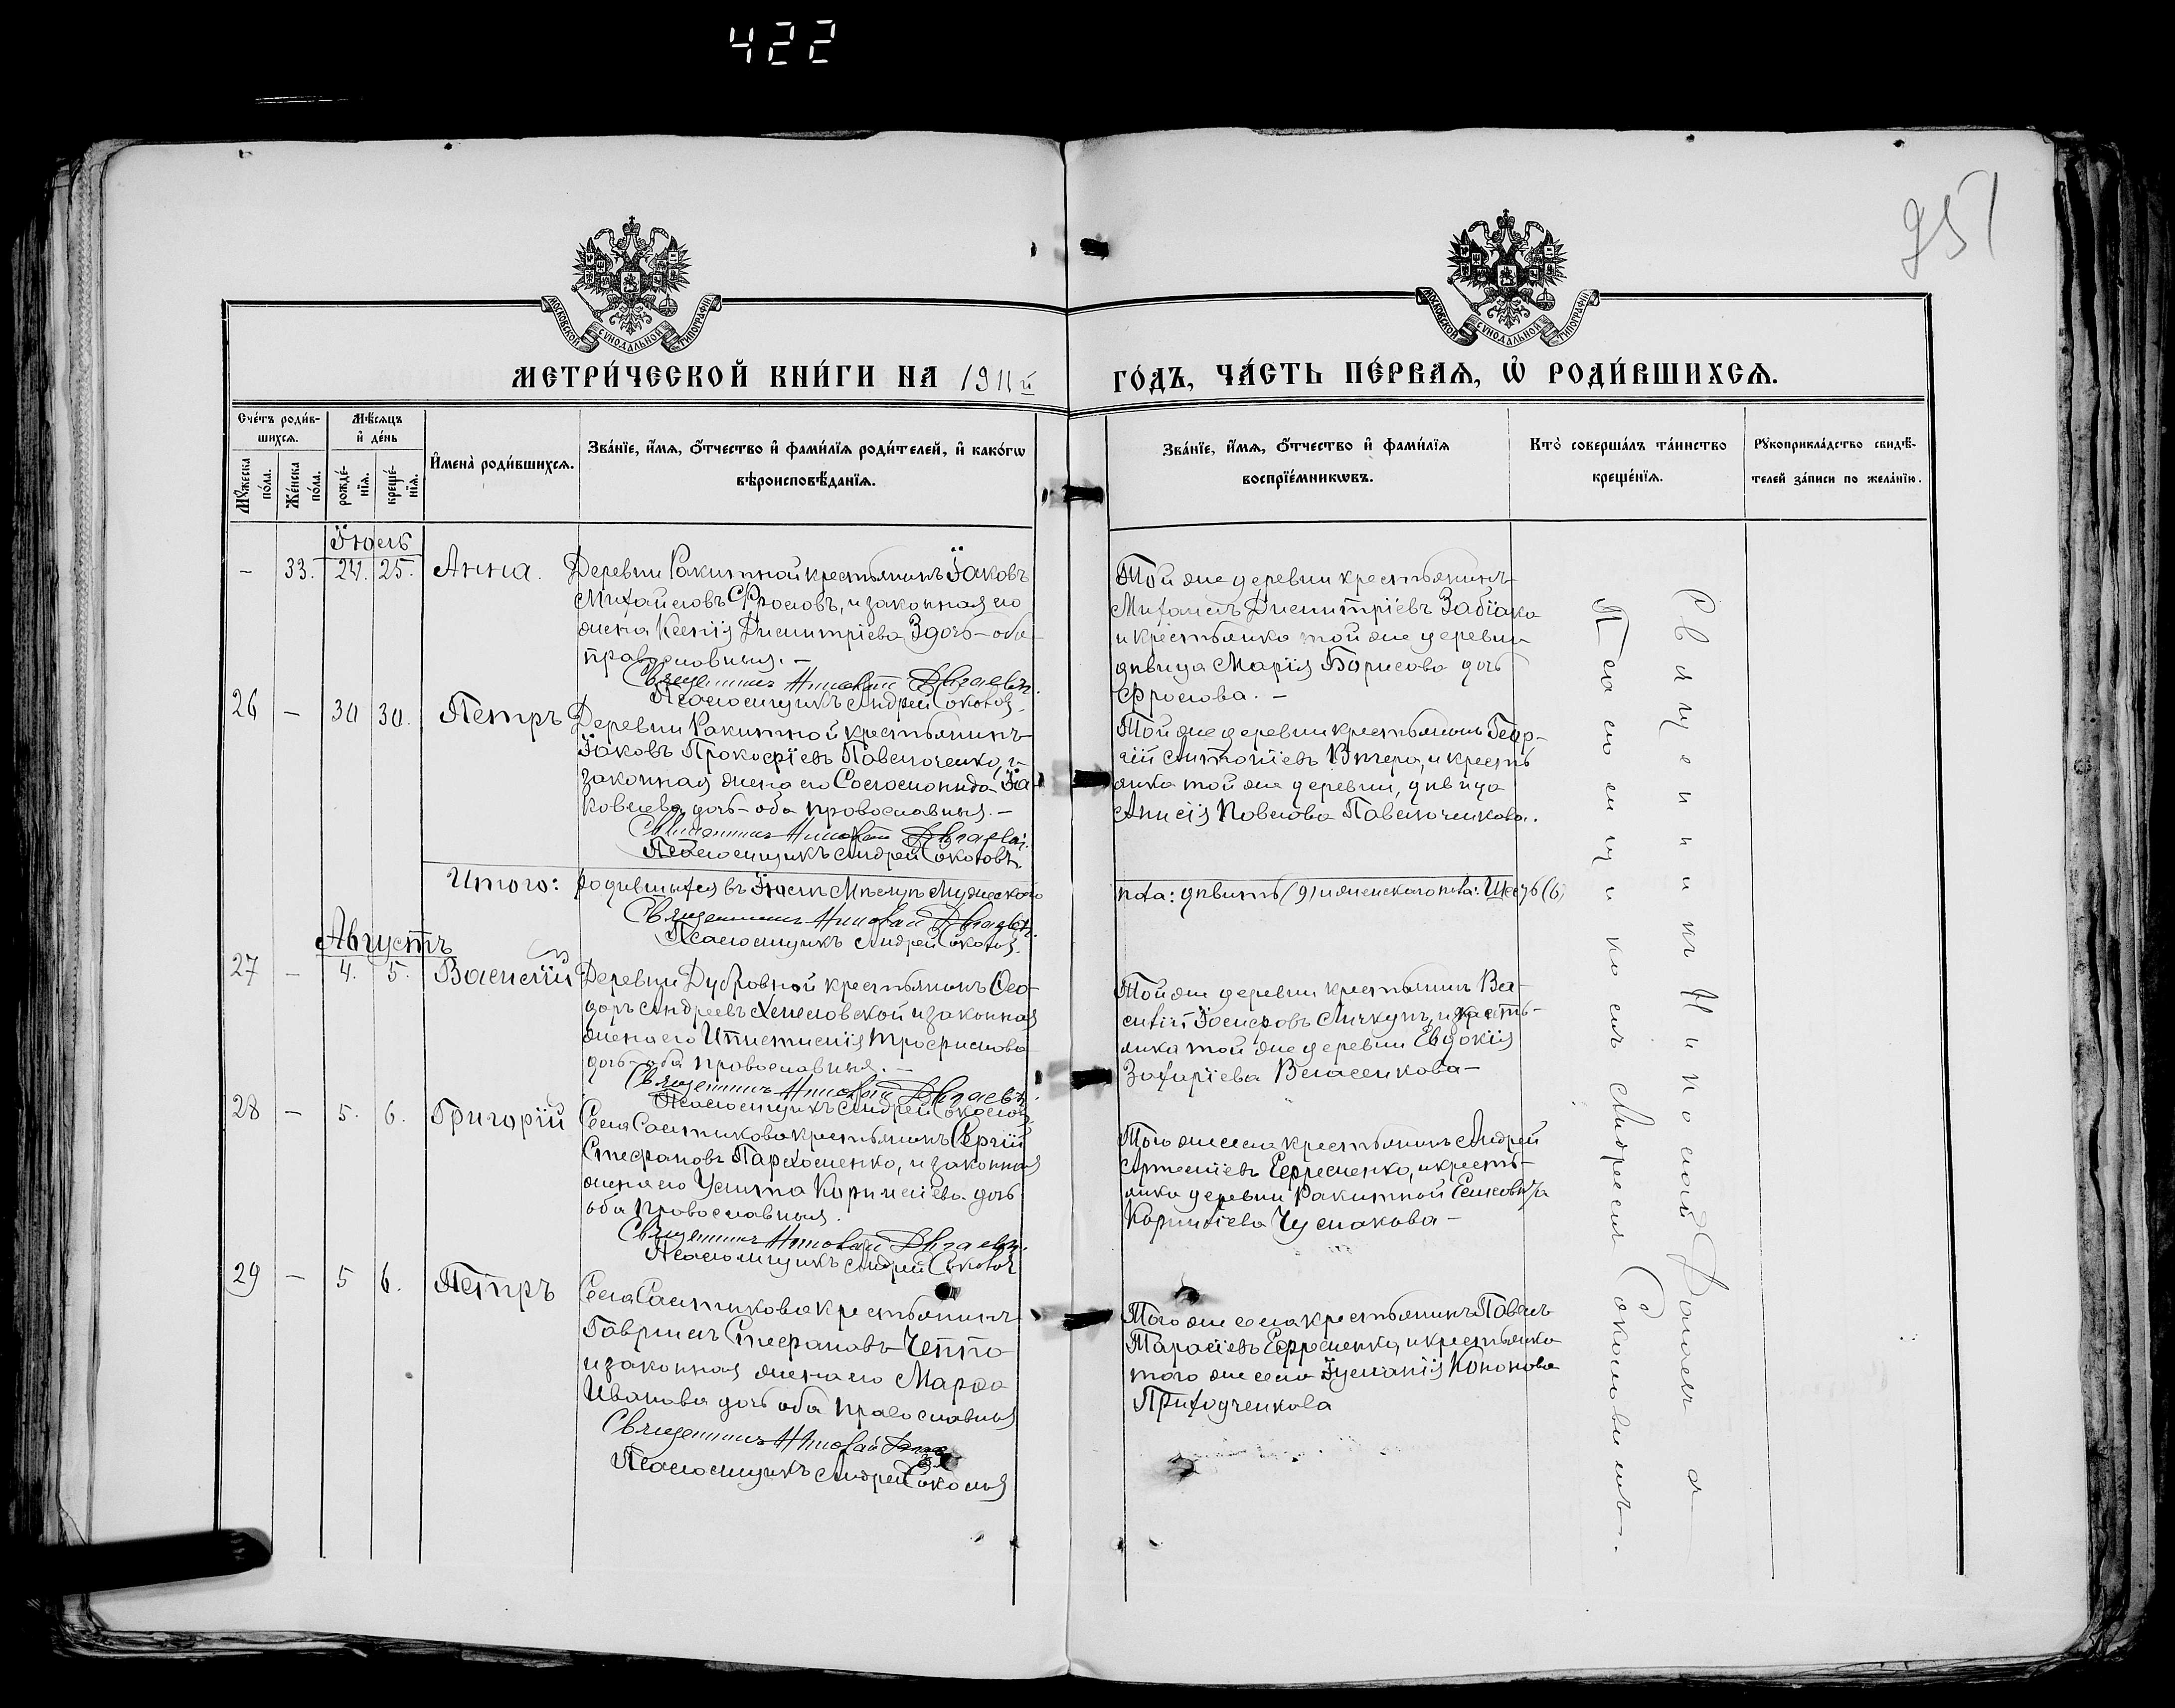 422
951
МОСКОВСКОЙ СѴНОДАЛЬНОЙ ТИПОГРАФІИ
МОСКОВСКОЙ СѴНОДАЛЬНОЙ ТИПОГРАФІИ
МЕТРИ́ЧЕСКОЙ КНИ́ГИ НА 1911й
ГО́ДЪ, ЧА́СТЬ ПЕ́РВАЯ, Ѡ҆ РОДИ́ВШИХСЯ.
Сче́тъ роди́в-
шихся.
Мѣ́сяцъ
и҆ де́нь
Мꙋ́жеска
по́ла.
Же́нска
по́ла.
рожде́-
нїя.
креще́-
нїя.
И҆мена̀ роди́вшихся.
Зва́нїе, и҆́мя, ѻ҆́тчество и҆ фами́лїя роди́телей, и҆ како́гѡ
вѣроисповѣ́данїя.
Зва́нїе, и҆́мя, ѻ҆́тчество и҆ фами́лїя
воспрїе́мникѡвъ.
Кто̀ соверша́лъ та́инство
креще́нїя.
Рꙋкоприкла́дство свидѣ́-
телей за́писи по жела́нїю.
Іюль
— 33. 24. 25. Анна.
Деревни Ракитной крестьянинъ Іаковъ
Михайловъ Фроловъ, и законная его
жена Ксенія Димитріева дочь – оба
православныя. —
Священникъ Николай
Псаломщикъ Андрей Соколовъ.
Той же деревни крестьянинъ
Михаилъ Димитріевъ Забіяка
и крестьянка той же деревни
дѣвица Марія Борисова дочь
Фролова. —
26 — 30 30. Петръ
Деревни Ракитной крестьянинъ
Іаковъ Прокофіевъ Павлюченко, и
законная жена его Соломонида Іа-
ковлева дочь – оба православныя. —
Священникъ Николай
Псаломщикъ Андрей Соколовъ.
Той же деревни крестьянинъ Геор-
гій Антоніевъ и крестья
янка той же деревни, дѣвица
Анисія Павлова Павлюченкова.
Итого: родившихся въ Іюлѣ Мѣсяцѣ Мужескаго
пола: девять (9) и женскаго пола: Шесть (6)
Священникъ Николай
Псаломщикъ Андрей Соколовъ.
Августъ
27 — 4. 5. Василій
Деревни Дубровной крестьянинъ Ѳео-
доръ Андреевъ и законная
жена его Епистимія Трофимова
дочь – оба православныя. —
Священникъ Николай
Псаломщикъ Андрей Соколовъ
Той же деревни крестьянинъ Ва-
силій Іосифовъ и кресть-
янка той же деревни Евдокія
Захаріева Власенкова —
28 — 5. 6. Григорій
Села крестьянинъ Сергій
Стефановъ Пархоменко, и законная
жена его Корниліева дочь
оба православныя.
Священникъ Николай
Псаломщикъ Андрей Соколовъ
Того же села крестьянинъ Андрей
Артеміевъ Ефременко, и кресть-
янка деревни Ракитной
Корниліева Чумакова —
29 — 5 6. Петръ
Села крестьянинъ
Гавриилъ Стефановъ
и законная жена его Марѳа
Иванова дочь оба православныя
Священникъ Николай
Псаломщикъ Андрей Соколовъ
Того же села крестьянинъ Павелъ
Тарасіевъ Ефременко, и крестьянка
того же села Іуліанія Кононова
Приходченкова
Священникъ Николай
Псаломщикъ Андрей Соколовъ.